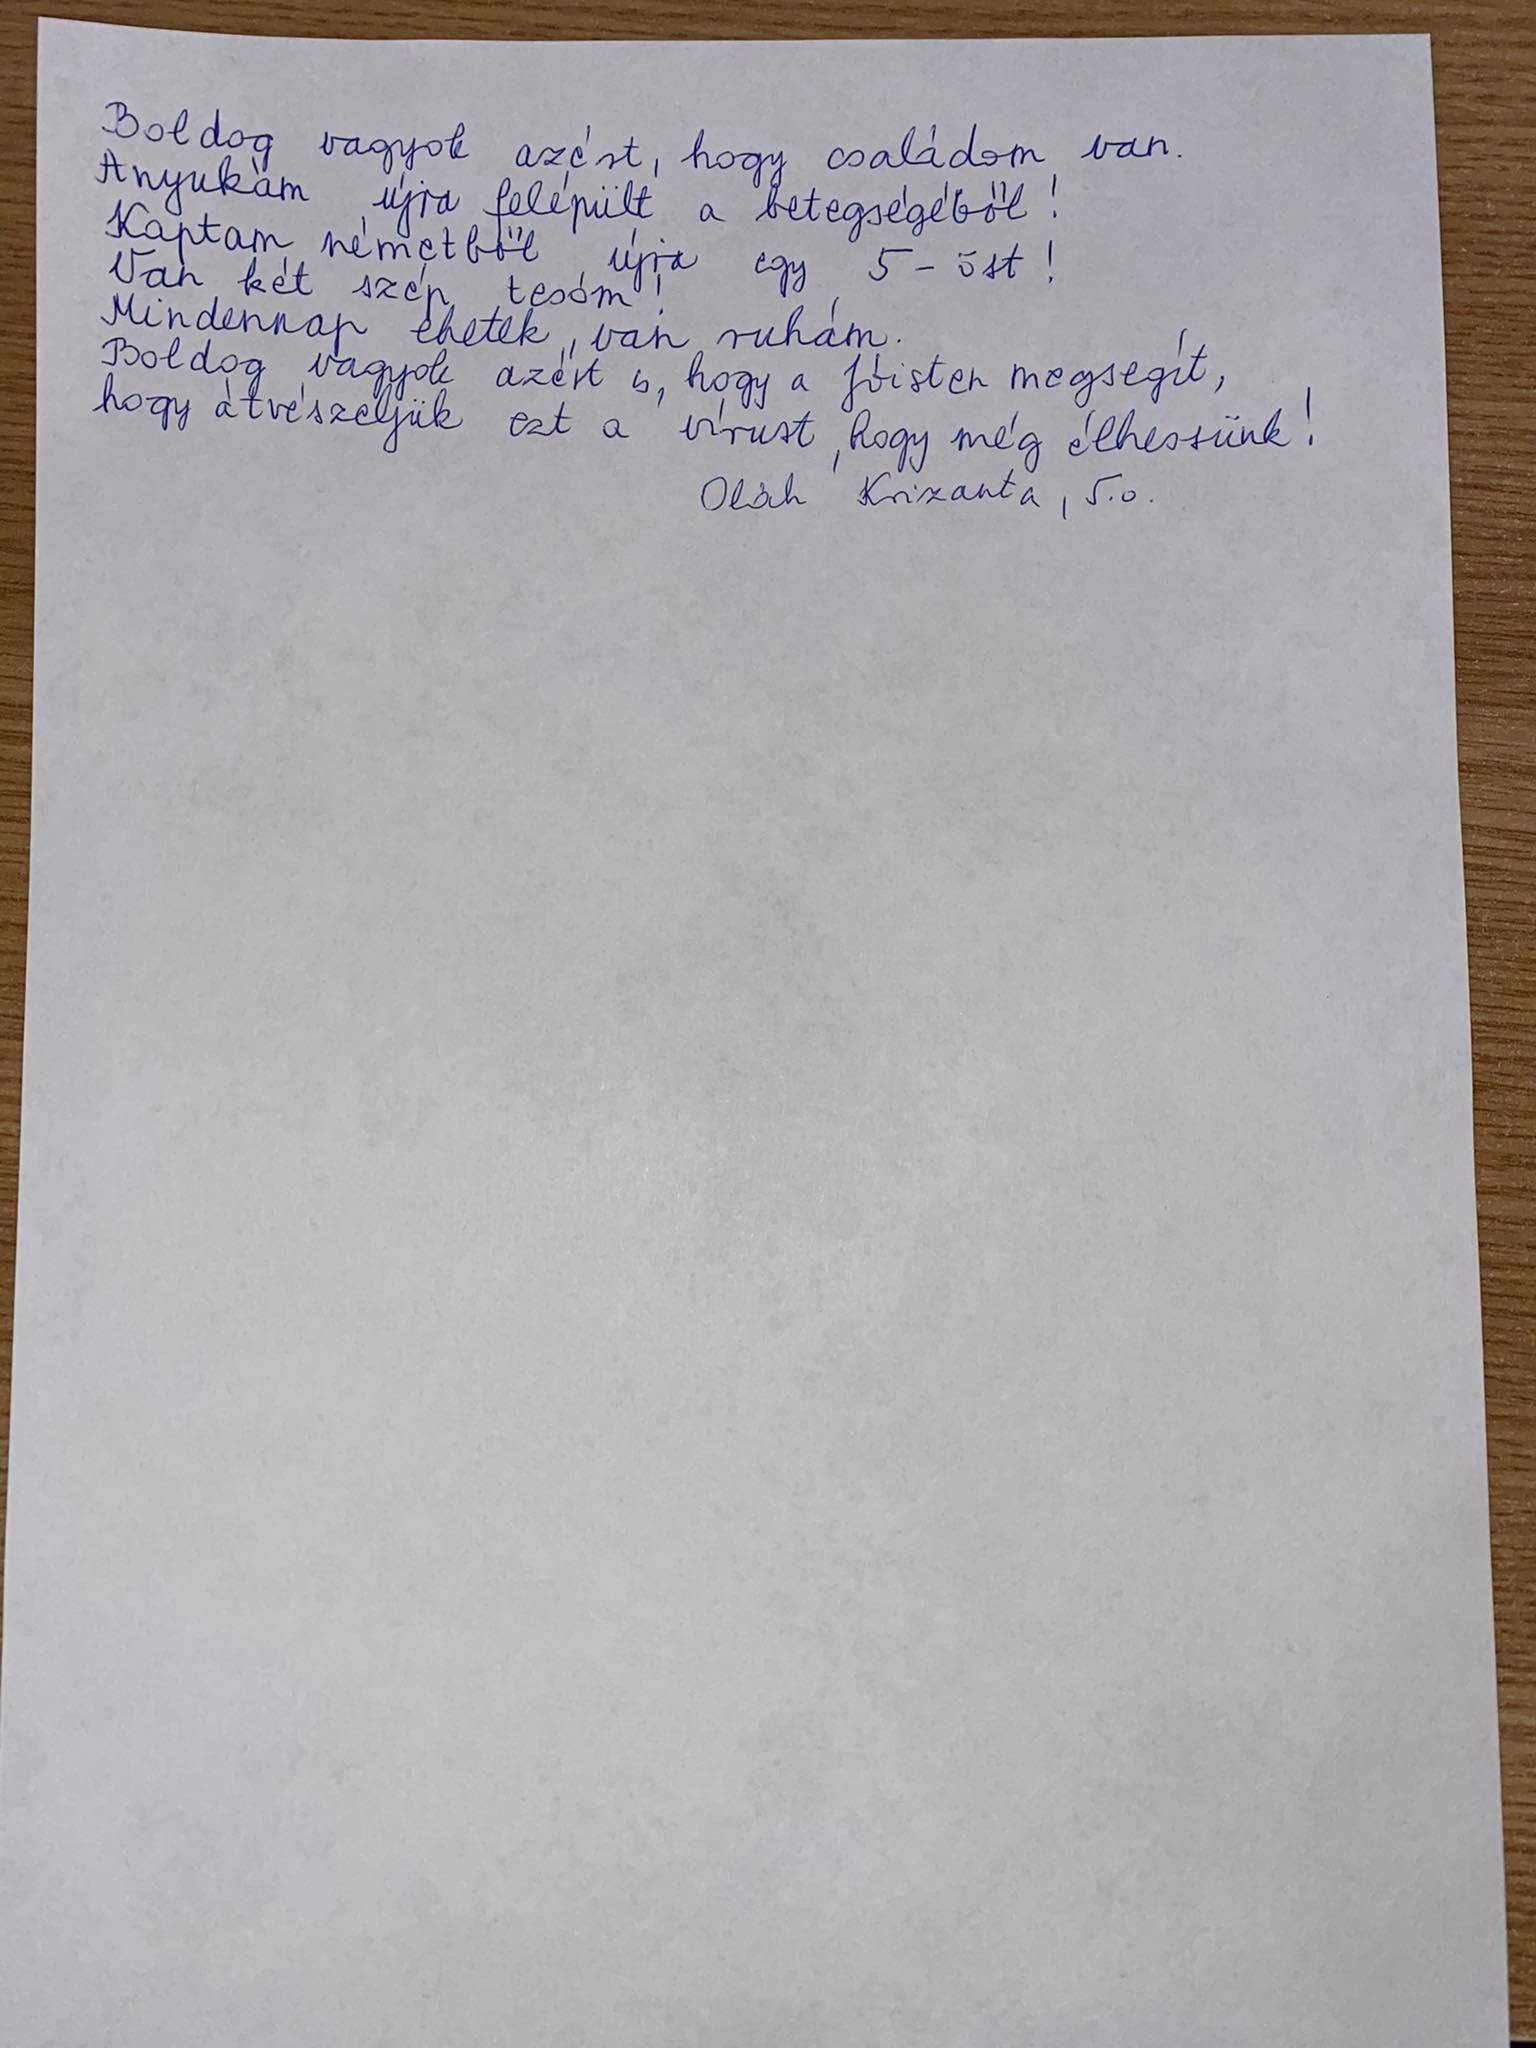 Boldog vagyok azért, hogy családom van.
Anyukám újra felépült a betegségéből!
Kaptam németből újra egy 5-öst!
Van két szép tesóm!
Mindennap ehetek, van ruhám.
Boldog vagyok azért is, hogy a jóisten megsegít,
hogy átvészeljük ezt a vírust, hogy még élhessünk!
Oláh Krizanta, 5.o.